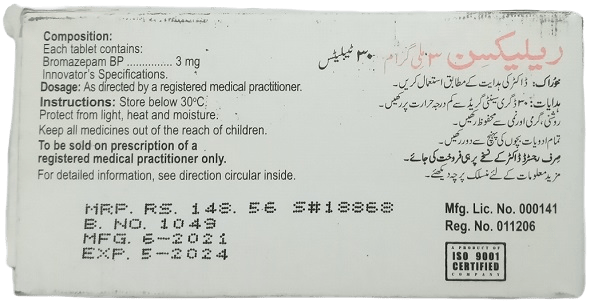 Composition:
Each tablet contains:
Bromazepam BP ............... 3 mg
Innovator's Specifications.
Dosage: As directed by a registered medical practitioner.
Instructions: Store below 30°C.
Protect from light, heat and moisture.
Keep all medicines out of the reach of children.
To be sold on prescription of a
registered medical practitioner only.
For detailed information, see direction circular inside.
ریلیکسن ۳ ملی گرام ۳۰ ٹیبلیٹس
خوراک: ڈاکٹر کی ہدایت کے مطابق استعمال کریں۔
ہدایات: ۳۰ ڈگری سینٹی گریڈ سے کم درجہ حرارت پر رکھیں۔
روشنی، گرمی اور نمی سے محفوظ رکھیں۔
تمام ادویات بچوں کی پہنچ سے دور رکھیں۔
صرف رجسٹرڈ ڈاکٹر کے نسخے پر ہی فروخت کی جائے۔
مزید معلومات کے لئے منسلک پرچہ دیکھئے۔
MRP. RS. 148. 56 S#18868
B. NO. 1049
MFG. 6-2021
EXP. 5-2024
Mfg. Lic. No. 000141
Reg. No. 011206
A PRODUCT OF
ISO 9001
CERTIFIED
COMPANY